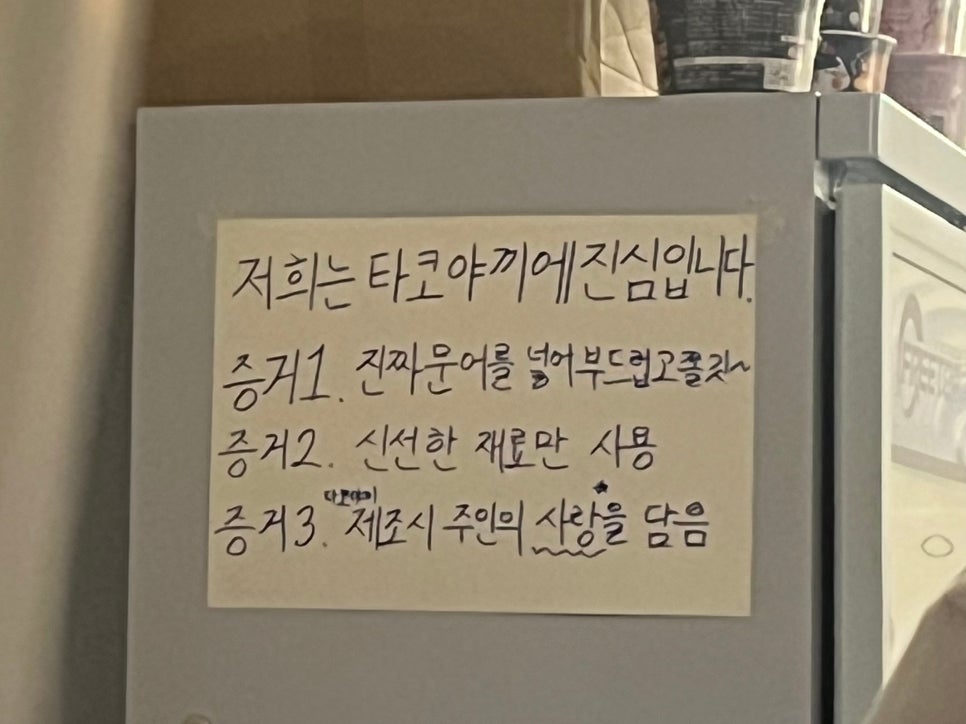 저희는 타코야끼에 진심입니다.
증거1. 진짜 문어를 넣어 부드럽고 쫄깃~
증거2. 신선한 재료만 사용
타코야끼
증거3. 제조시 주인의 사랑을 담음